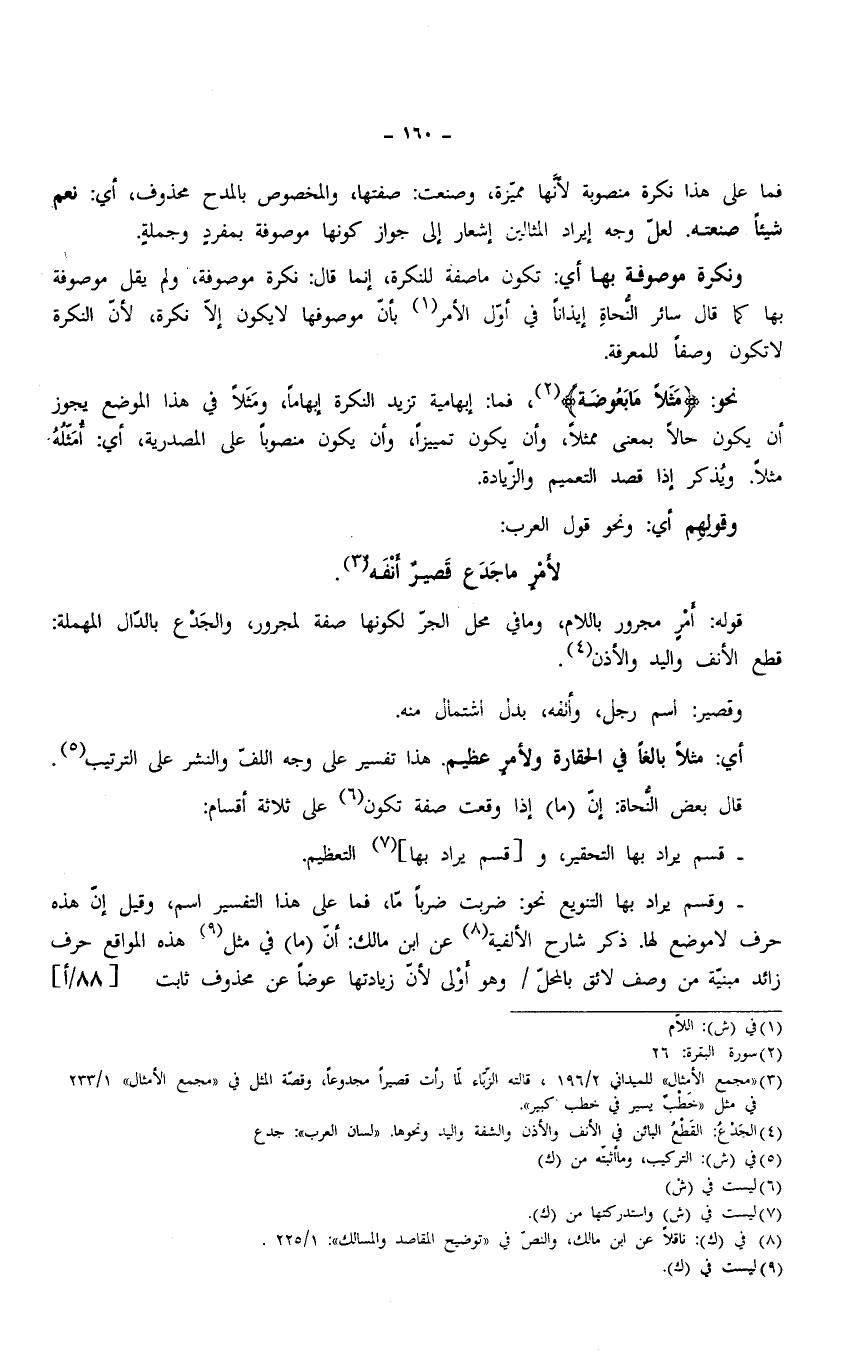 - ١٦٠ -
فما على هذا نكرة منصوبة لأنَّها مميّزة، وصنعت: صفتها، والمخصوص بالمدح محذوف، أي: نعم
شيئاً صنعته. لعلّ وجه إيراد المثالين إشعار إلى جواز كونها موصوفة بمفردٍ وجملةٍ.
ونكرة موصوفة بها أي: تكون ماصفة للنكرة، إنما قال: نكرة موصوفة، ولم يقل موصوفة
بها كما قال سائر النُّحاةِ إيذاناً في أوّل الأمر(١) بأنّ موصوفها لايكون إلاّ نكرة، لأنّ النكرة
لاتكون وصفاً للمعرفة.
نحو: ﴿مَثَلاً مَابَعُوضَة﴾(٢)، فما: إبهامية تزيد النكرة إبهاماً، ومَثَلاً في هذا الموضع يجوز
أن يكون حالاً بمعنى ممثلاً، وأن يكون تمييزاً، وأن يكون منصوباً على المصدرية، أي: أُمَثِّلُهُ
مثلاً. ويُذكر إذا قصد التعميم والزّيادة.
وقولِهِم أي: ونحو قول العرب:
لأمْرٍ ماجَدَع قَصيرٌ أَنْفَه(٣).
قوله: أَمْرٍ مجرور باللام، ومافي محل الجرّ لكونها صفة لمجرور، والجَدْع بالدّال المهملة:
قطع الأنف واليد والأذن(٤).
وقصير: اسم رجل، وأنفه، بدل اشتمال منه.
أي: مثلاً بالغاً في الحقارة ولأمرٍ عظيم. هذا تفسير على وجه اللفّ والنشر على الترتيب(٥).
قال بعض النُّحاة: إنّ (ما) إذا وقعت صفة تكون(٦) على ثلاثة أقسام:
- قسم يراد بها التحقير، و [قسم يراد بها](٧) التعظيم.
- وقسم يراد بها التنويع نحو: ضربت ضرباً مّا، فما على هذا التفسير اسم، وقيل إنّ هذه
حرف لاموضع لها. ذكر شارح الألفية(٨) عن ابن مالك: أنّ (ما) في مثل(٩) هذه المواقع حرف
زائد مبنيّة من وصف لائق بالمحلّ / وهو أَوْلى لأنّ زيادتها عوضاً عن محذوف ثابت [٨٨/أ]
(١)في (ش): اللاّم
(٢)سورة البقرة: ٢٦
(٣)«مجمع الأمثال» للميداني ١٩٦/٢ ، قالته الزبّاء لمّا رأت قصيراً مجدوعاً، وقصّة المثل في «مجمع الأمثال» ٢٣٣/١
في مثل «خَطْبٌ يسير في خطب كبير».
(٤)الجَدْعُ: القَطْعُ البائن في الأنف والأذن والشفة واليد ونحوها. «لسان العرب»: جدع
(٥)في (ش): التركيب، وماأثبتّه من (ك)
(٦)ليست في (ش)
(٧)ليست في (ش) واستدركتها من (ك).
(٨) في (ك): ناقلاً عن ابن مالك، والنصّ في «توضيح المقاصد والمسالك»: ٢٢٥/١ .
(٩)ليست في (ك).